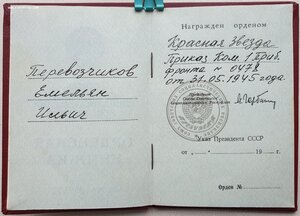 Перевозчиков
Емельян
Ильич
Награжден орденом
Красная Звезда
Приказ Ком. 1 Приб.
фронта № 0478
от 31.05.1945 года
Указ Президента СССР
от „ “ 19 г.
Орден №